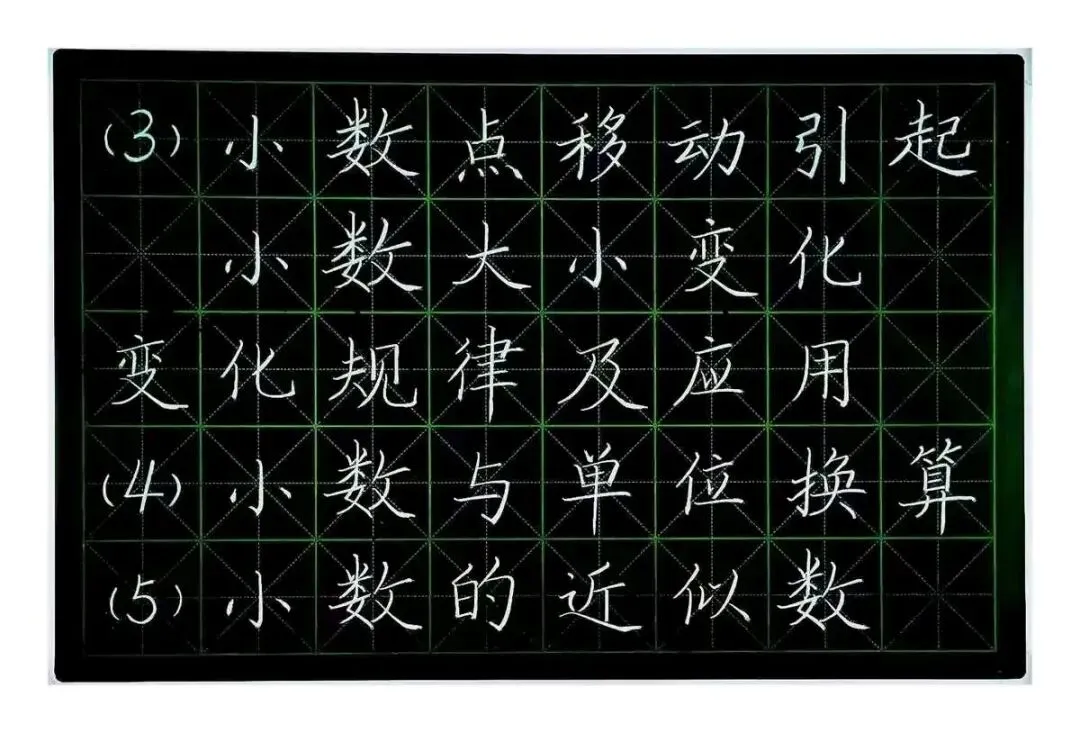 (3)小数点移动引起
小数大小变化
变化规律及应用
(4)小数与单位换算
(5)小数的近似数